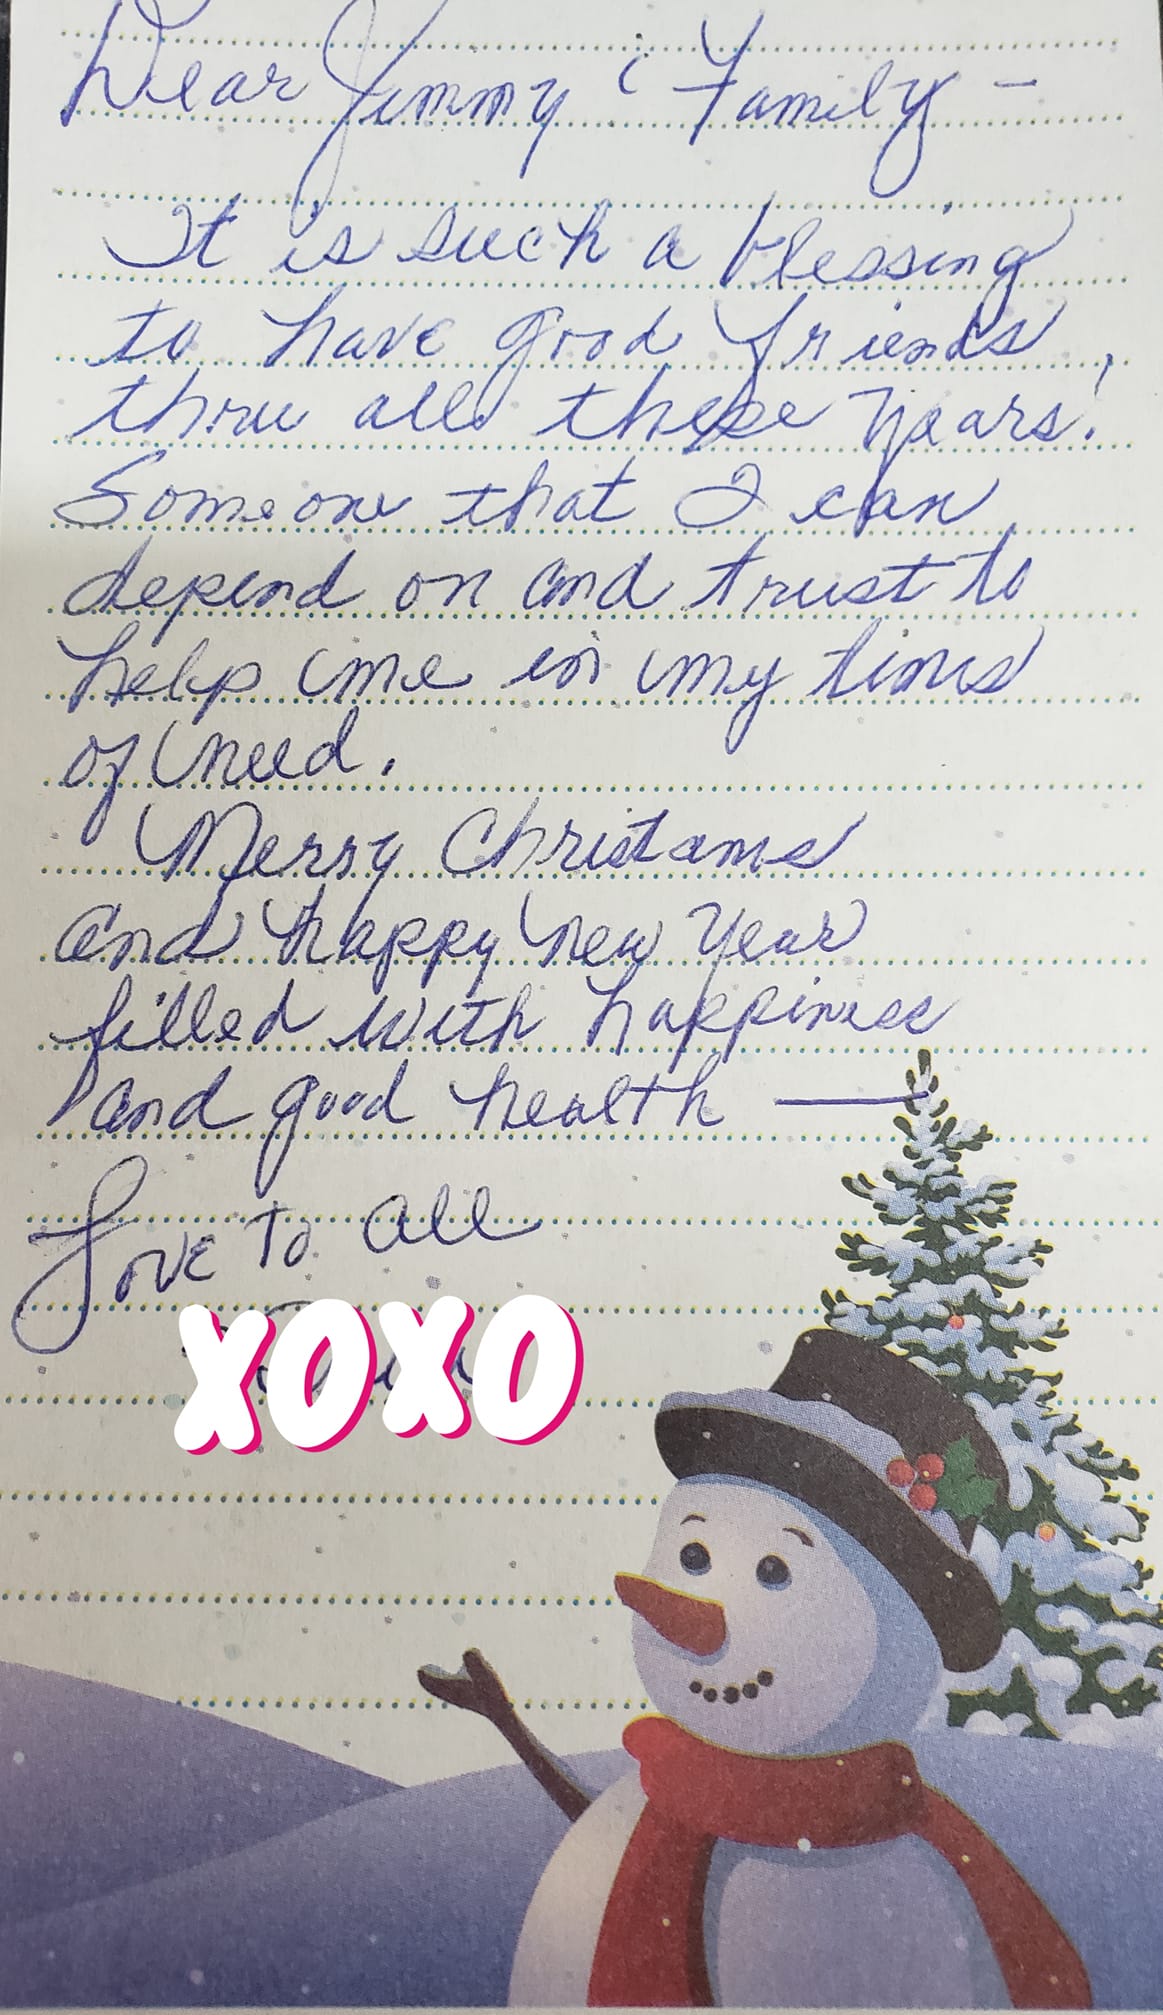 Dear Jimmy & Family -
It is such a blessing
to have good friends
thru all these years!
Someone that I can
depend on and trust to
help me in my times
of need.
Merry Christams
and happy new year
filled with happiness
and good health —
Love to all
XOXO